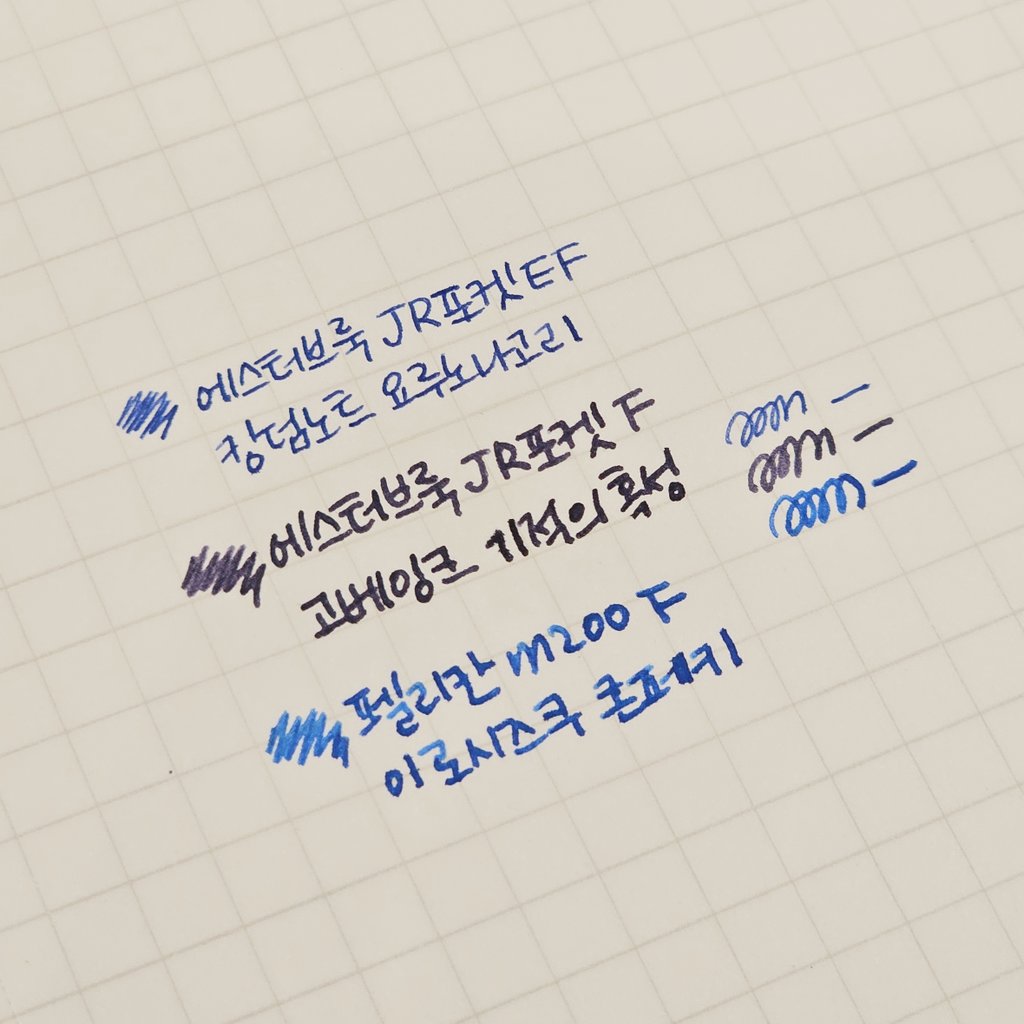 에스터브룩 JR포켓 EF
킹덤노트 요루노나고리
에스터브룩 JR포켓 F
고베잉크 기적의 혹성
펠리칸 m200 F
이로시즈쿠 콘페키